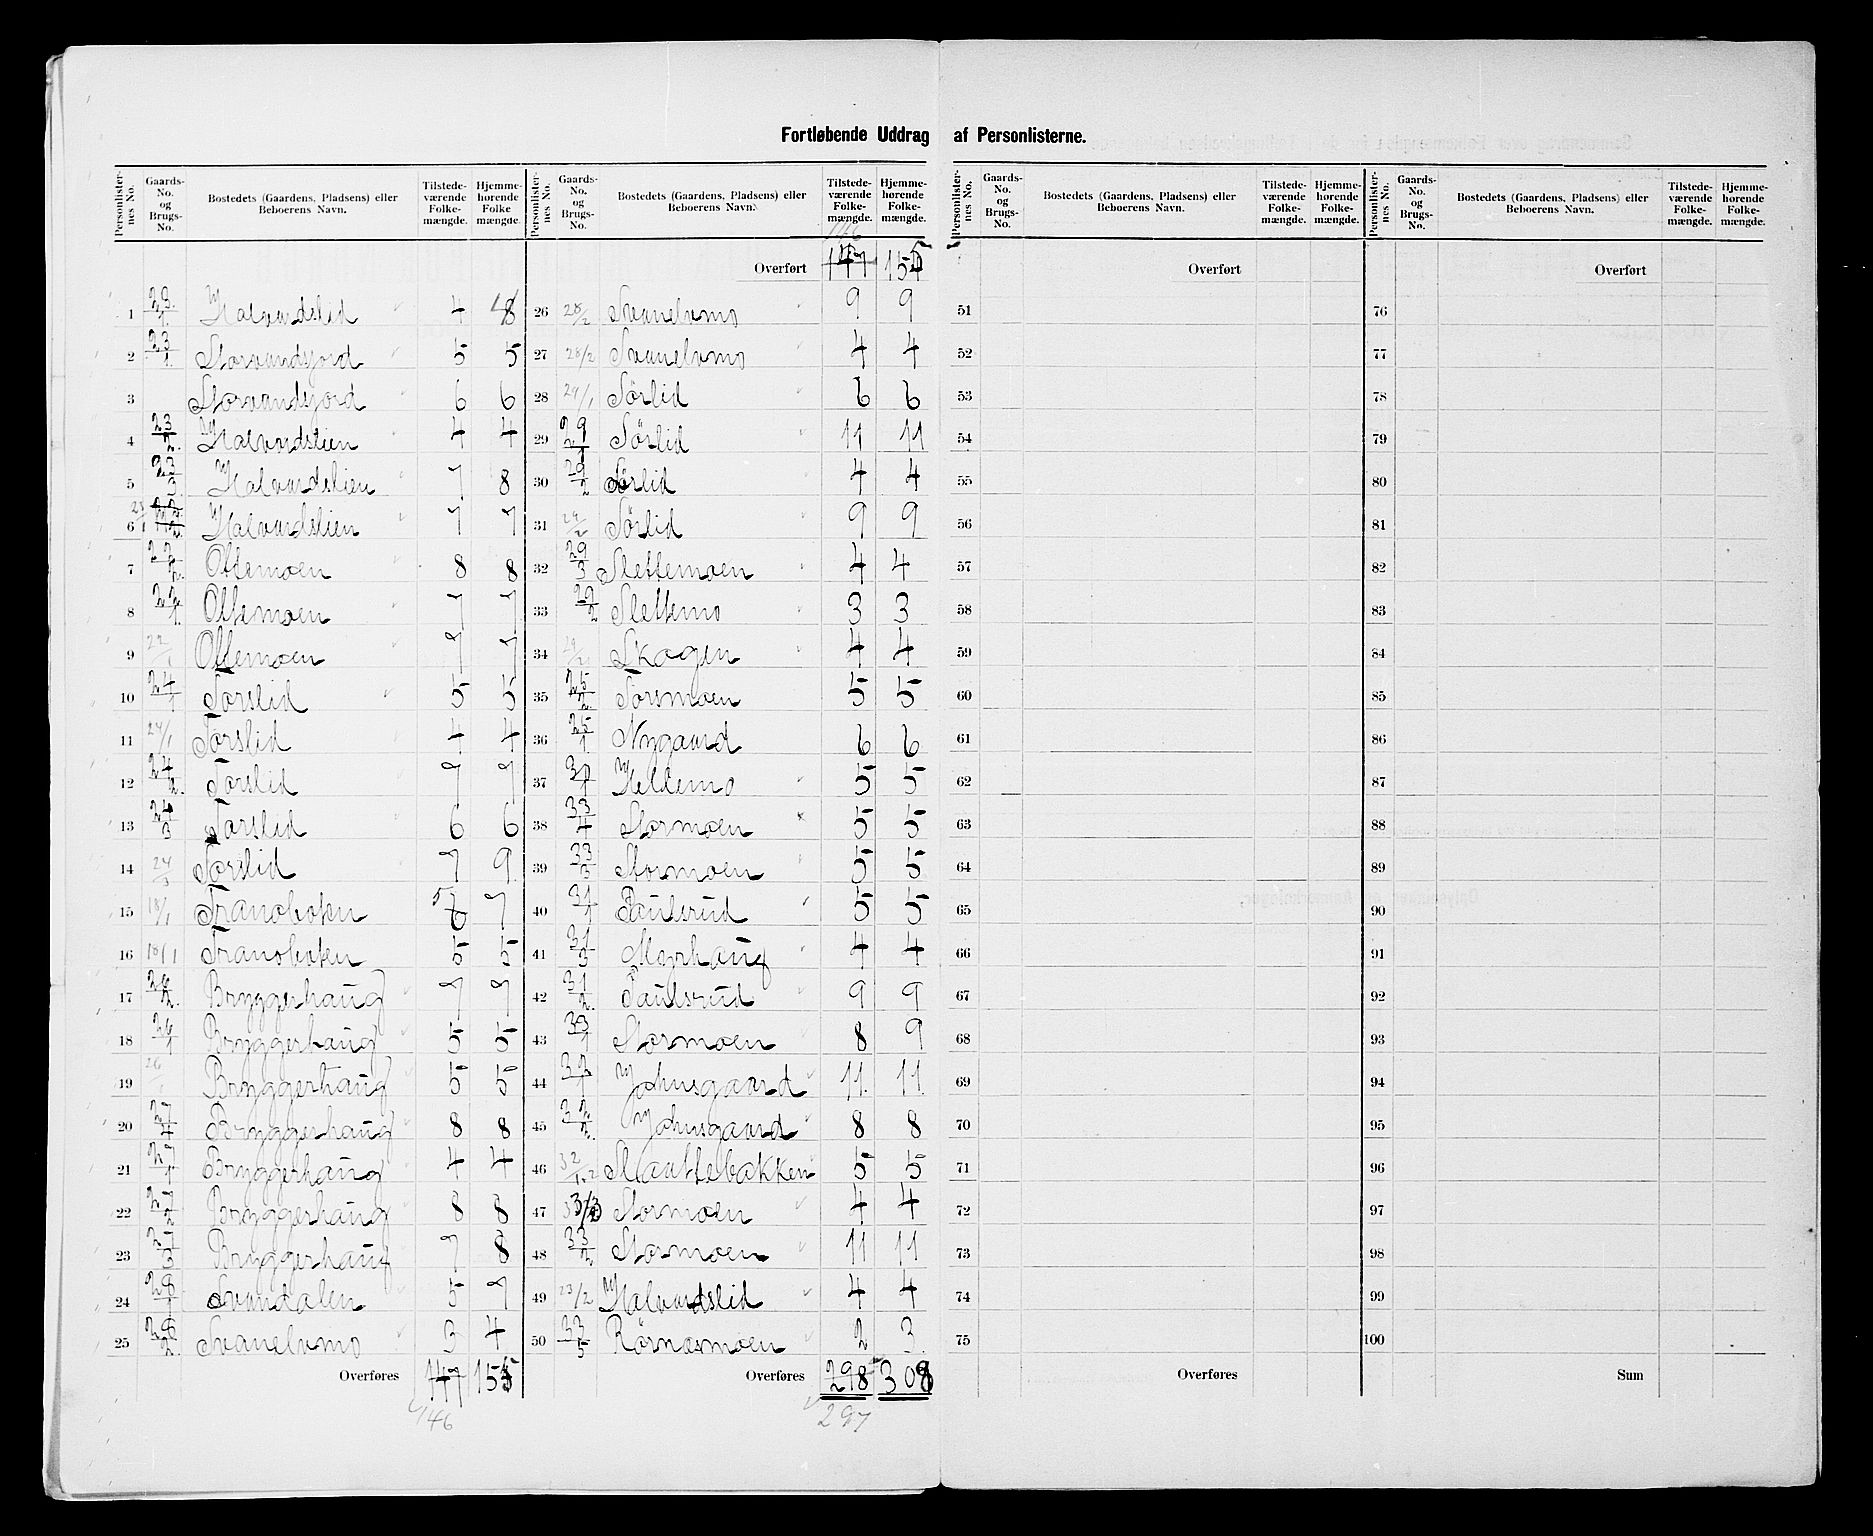 Fortløbende Uddrag af Personlisterne.
Personlister-nes No. | Gaards-No. og Brugs-No. | Bostedets (Gaardens, Pladsens) eller Beboerens Navn. | Tilstede-værende Folke-mængde. | Hjemme-hørende Folke-mængde.
1 | 23/1. | Halvardslid | 4 | 8
2 | 23/1. | Storvandsjord | 5 | 5
3 | Storvandsjord | 6 | 6
4 | 23/2. | Halvardslien | 4 | 4
5 | 23/3 | Halvardslien | 7 | 8
6 | Halvardslien | 7 | 7
7 | 22/2. | Oftemoen | 8 | 8
8 | 22/1. | Oftemoen | 7 | 7
9 | 22/1 | Oftemoen | 7 | 7
10 | 24/1 | Torslid | 5 | 5
11 | 24/1 | Torslid | 4 | 4
12 | 24/2. | Torslid | 7 | 7
13 | 24/3 | Torslid | 6 | 6
14 | 24/3 | Torslid | 7 | 9
15 | 18/1 | Tranobotten | 7
16 | 18/1 | Tranobotten | 5 | 5
17 | 26/2. | Bryggerhaug | 7 | 7
18 | 26/1 | Bryggerhaug | 5 | 5
19 | 26/1 | Bryggerhaug | 5 | 5
20 | 27/4 | Bryggerhaug | 8 | 8
21 | 27/1 | Bryggerhaug | 4 | 4
22 | 27/2 | Bryggerhaug | 8 | 8
23 | 27/3 | Bryggerhaug | 7 | 8
24 | 28/1 | Svandalen | 5 | 7
25 | 28/2. | Svanelvmo | 3 | 4
Overføres | 147 | 155
146
Personlister-nes No. | Gaards-No. og Brugs-No. | Bostedets (Gaardens, Pladsens) eller Beboerens Navn. | Tilstede-værende Folke-mængde. | Hjemme-hørende Folke-mængde.
146
Overført | 147 | 155
26 | 28/2 | Svanelvmo | 9 | 9
27 | 28/2 | Svanelvmo | 4 | 4
28 | 29/1 | Sörlid | 6 | 6
29 | 29/1 | Sörlid | 11 | 11
30 | 29/2 | Sörlid | 4 | 4
31 | 29/2 | Sörlid | 9 | 9
32 | 29/3 | Slettemoen | 4 | 4
33 | 29/2 | Slettemo | 3 | 3
34 | 29/2 | Skogen | 4 | 4
35 | 25/2. | Torsmoen | 5 | 5
36 | 25/1. | Nygaard | 6 | 6
37 | 30/1 | Heldemo | 5 | 5
38 | 33/4 | Stormoen | 5 | 5
39 | 33/3 | Stormoen | 5 | 5
40 | 31/1 | Paulsrud | 5 | 5
41 | 31/3 | Morhaug | 4 | 4
42 | 31/2. | Paulsrud | 9 | 9
43 | 33/1 | Stormoen | 8 | 9
44 | 32/1 | Johnsgaard | 11. | 11
45 | 32/2. | Johnsgaard | 8 | 8
46 | 32/1.2 | Slaattebakken | 5 | 5
47 | Stormoen | 4 | 4
48 | 33/2 | Stormoen | 11 | 11
49 | 23/2 | Halvardslid | 4 | 4
50 | 33/5 | Rörnæsmoen | 2 | 3
Overføres | 298 | 308
297
Personlister-nes No. | Gaards-No. og Brugs-No. | Bostedets (Gaardens, Pladsens) eller Beboerens Navn. | Tilstede-værende Folke-mængde. | Hjemme-hørende Folke-mængde.
Overført
51
52
53
54
55
56
57
58
59
60
61
62
63
64
65
66
67
68
69
70
71
72
73
74
75
Overføres
Personlister-nes No. | Gaards-No. og Brugs-No. | Bostedets (Gaardens, Pladsens) eller Beboerens Navn. | Tilstede-værende Folke-mængde. | Hjemme-hørende Folke-mængde.
Overført
76
77
78
79
80
81
82
83
84
85
86
87
88
89
90
91
92
93
94
95
96
97
98
99
100
Sum